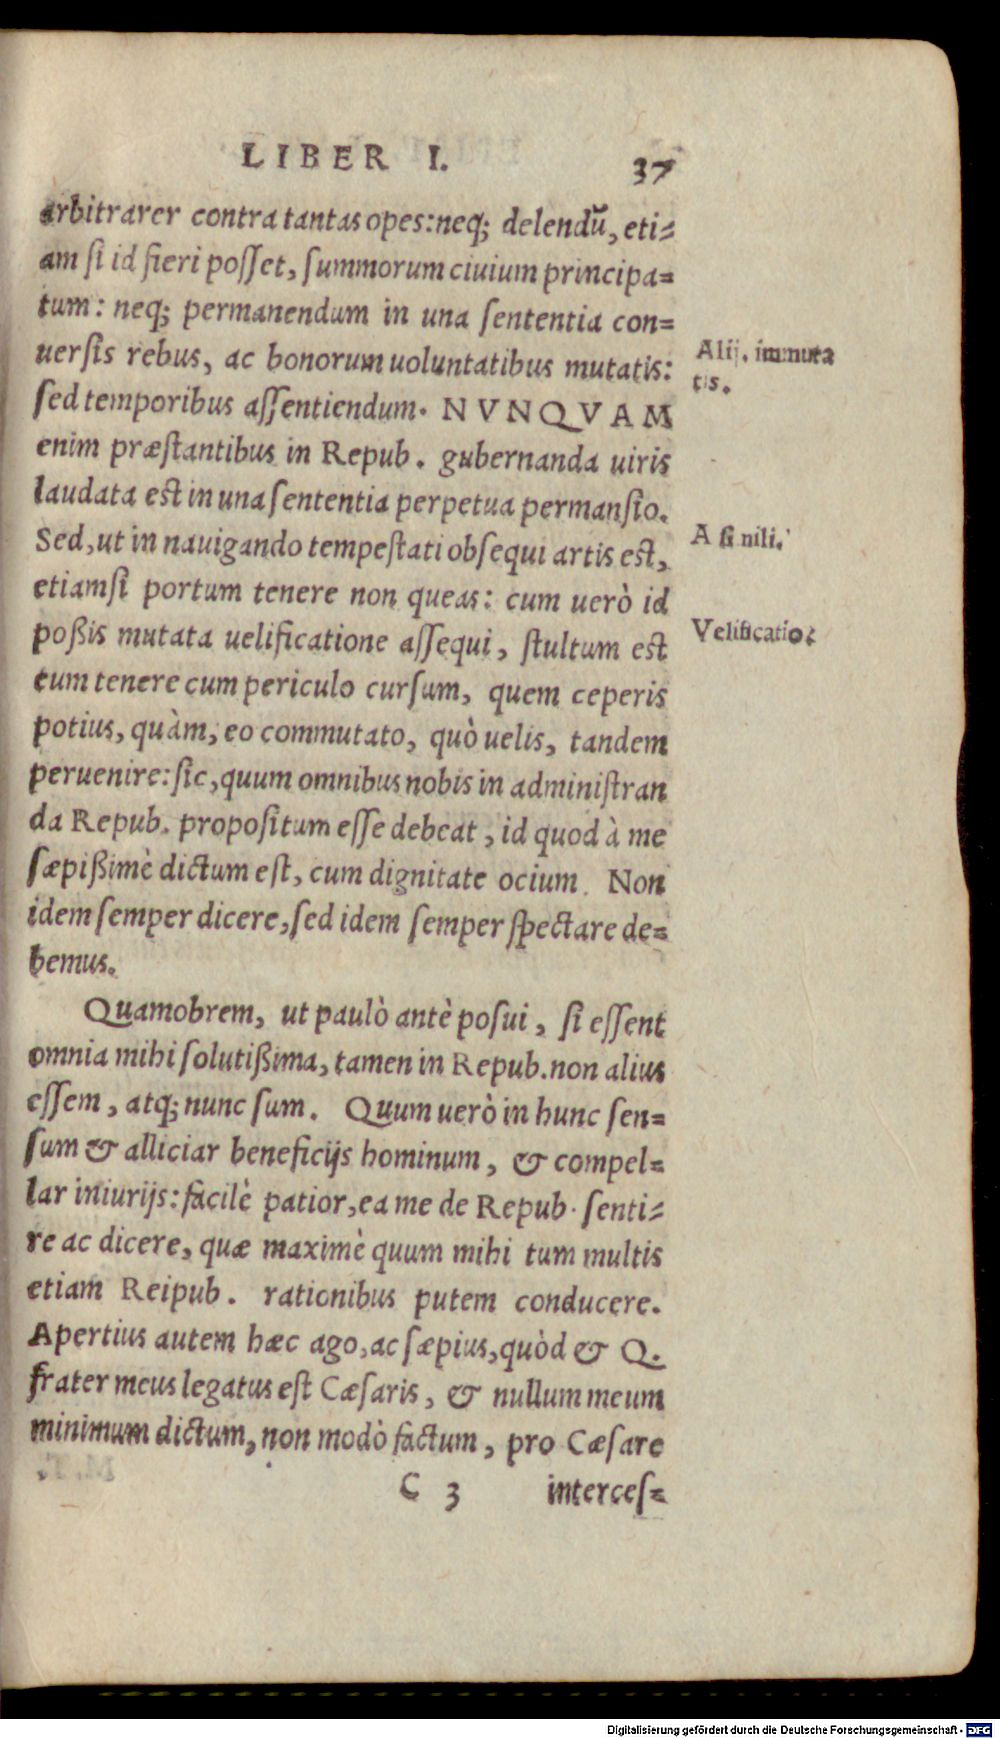 LIBER I. 37
arbitrarer contra tantas opes: neq; delendū, eti=
am si id fieri posset, summorum ciuium principa=
tum: neq; permanendum in una sententia con=
uersis rebus, ac bonorum uoluntatibus mutatis:
Alij. immuta
tis.
sed temporibus assentiendum. NVNQVAM
enim præstantibus in Repub. gubernanda uiris
laudata est in una sententia perpetua permansio.
Sed, ut in nauigando tempestati obsequi artis est,
A simili.
etiamsi portum tenere non queas: cum uerò id
poßis mutata uelificatione assequi, stultum est
Velificatio.
eum tenere cum periculo cursum, quem ceperis
potius, quàm, eo commutato, quò uelis, tandem
peruenire: sic, quum omnibus nobis in administran
da Repub. propositum esse debeat, id quod à me
sæpißimè dictum est, cum dignitate ocium. Non
idem semper dicere, sed idem semper spectare de=
bemus.
Quamobrem, ut paulò antè posui, si essent
omnia mihi solutißima, tamen in Repub. non alius
essem, atq; nunc sum. Quum uerò in hunc sen=
sum & alliciar beneficijs hominum, & compel=
lar iniurijs: facilè patior, ea me de Repub. senti=
re ac dicere, quæ maximè quum mihi tum multis
etiam Reipub. rationibus putem conducere.
Apertius autem hæc ago, ac sæpius, quòd & Q.
frater meus legatus est Cæsaris, & nullum meum
minimum dictum, non modò factum, pro Cæsare
C 3 interces=
Digitalisierung gefördert durch die Deutsche Forschungsgemeinschaft - DFG